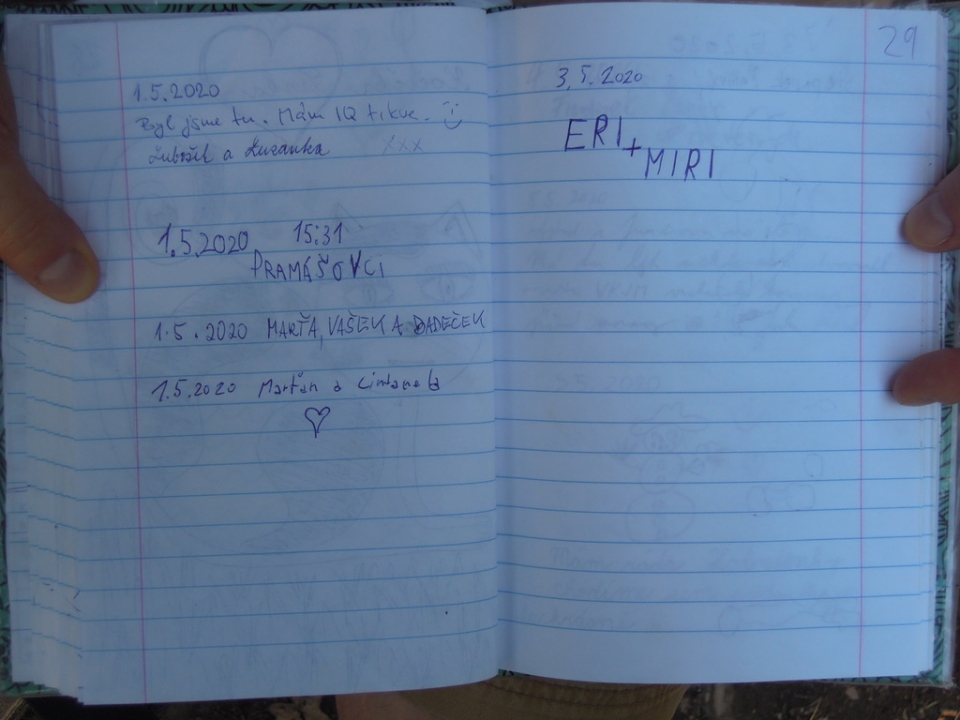 1.5.2020
Byl jsme tu. Mám IQ tikve. :)
Lubošek a Zuzanka xxx
1.5.2020 15:31
PRAMÁŠOVCI
1.5.2020 MARŤA, VAŠEK A DADEČEK
1.5.2020 Marťan a
♡
29
3.5.2020
ERI +
MIRI